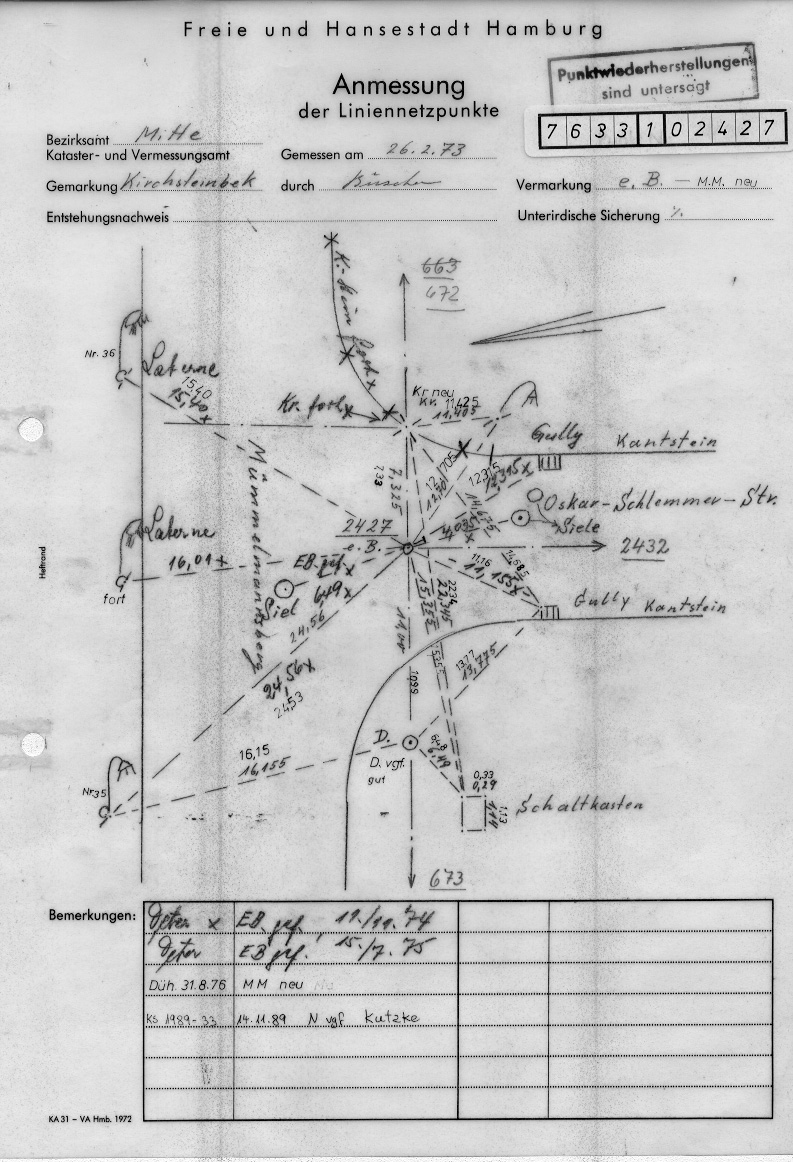 Freie und Hansestadt Hamburg
Anmessung
der Liniennetzpunkte
Punktwiederherstellungen
sind untersagt
7 6 3 3 1 0 2 4 2 7
Bezirksamt Mitte
Kataster- und Vermessungsamt
Gemessen am 26.2.73
Gemarkung Kirchsteinbek
durch
Vermarkung e. B. – M.M. neu
Entstehungsnachweis
Unterirdische Sicherung ./.
663
672
K.-Stein fort x
Nr. 36
Laterne
15,40
15,40 x
Kr. fort x
Kr neu
Kr. 11,425
11,405
Gully
Kantstein
Mümmelmannsberg
7,33
7,325
12,705
12,315
12,315 x
14,675
Oskar-Schlemmer-Str.
Siele
4,035 x
2427
e. B.
2432
Laterne
16,01 x
fort
EB. gef.
Siel 6,49 x
11,16
11,155
Gully
Kantstein
24,56
24,56 x
24,53
15,355
2234
22,345
11,00
10,99
5355
13,77
13,775
D.
D. vgf.
gut
6,48
6,49
16,15
16,155
Nr 35
0,33
0,29
1,13
1,14
Schaltkasten
673
Heftrand
Bemerkungen:
Peter x EB. gef. 19./11. '74
Peter EB gef. 15./7. 75
Düh. 31.8.76 MM neu
Ks 1989-33 14.11.89 N vgf Kutzke
KA 31 – VA Hmb. 1972